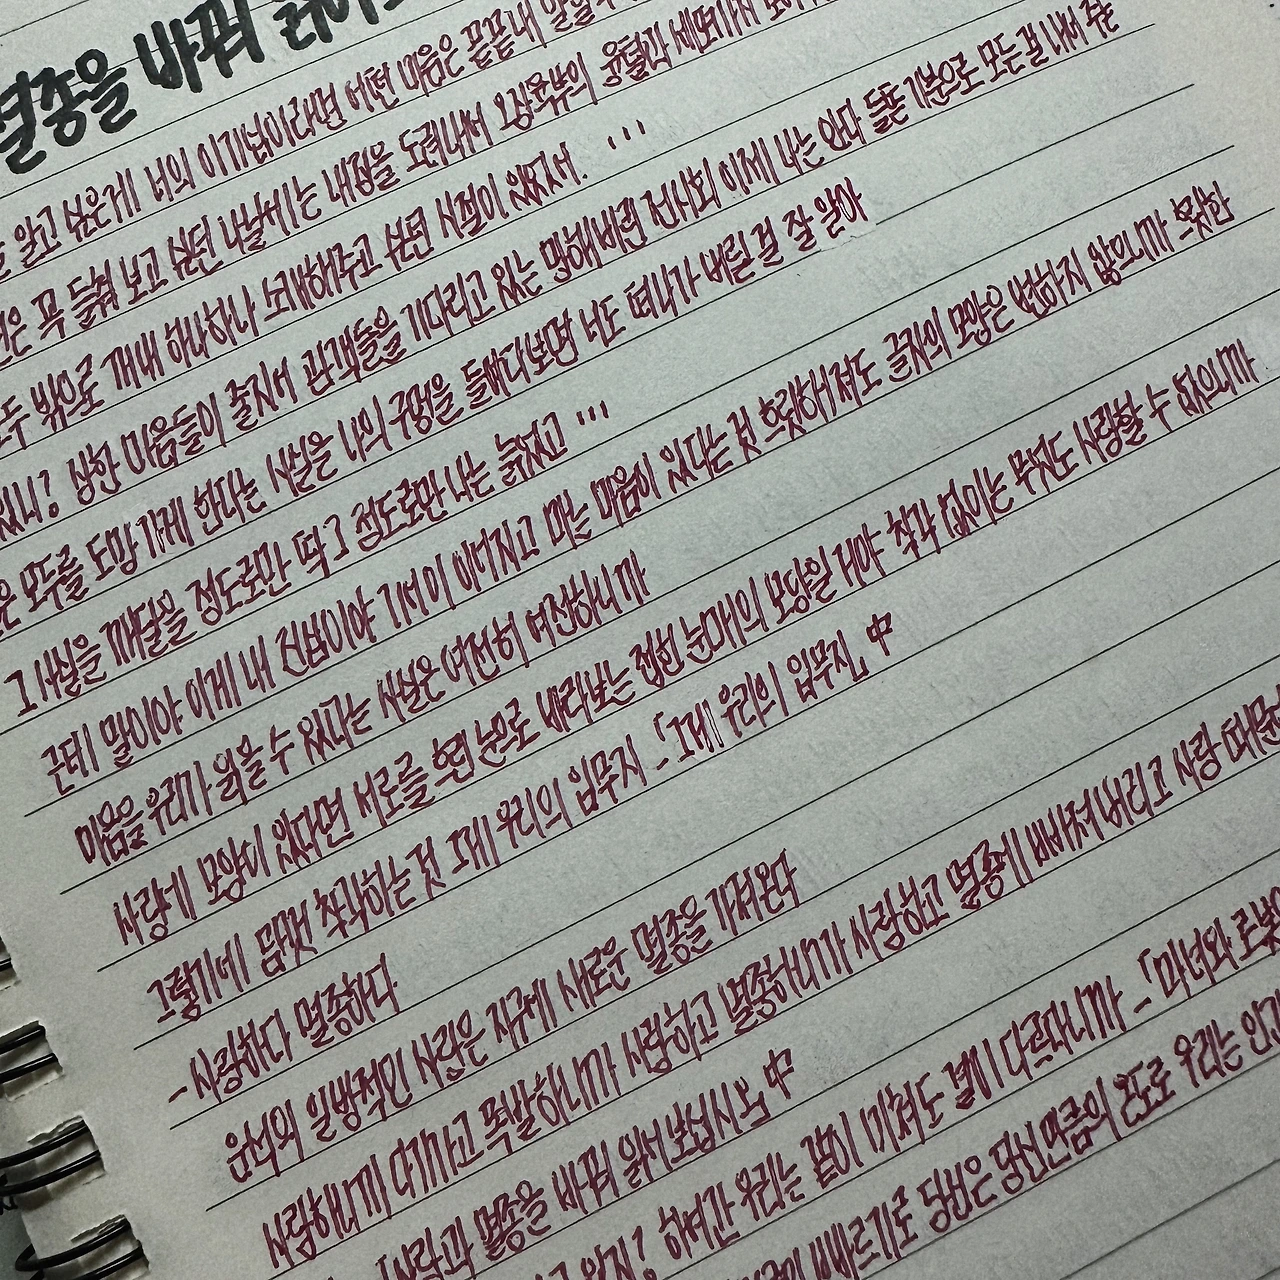 멸종을 바꿔
알고 싶은게 너의 이기심이라면 어떤 마음은 끝끝내
푹 들춰 보고 싶던 나날에는 내장을 도려내서 오장육부의 융털과 세포까지
모두 밖으로 꺼내 하나하나 소개해주고 싶던 시절이 있었지 ...
있니? 상한 마음들이 줄지어 관객들을 기다리고 있는 망해버린 전시회 이제 나는 안다 들뜬 기분으로 모든걸 내어 주는
은 모두를 도망가게 한다는 사실을 나의 구멍을 들여다보면 너도 떠나가 버릴 걸 잘 알아
그 사실을 깨달을 정도로만 딱 그 정도로만 나는 늙었고 ...
근데 말이야 이게 내 진심이야 기어이 이어지고 마는 마음이 있다는 것 흐릿해져도 글자의 모양은 변하지 않으니까 오독한
마음을 우리가 읽을 수 있다는 사실은 여전히 여전하니까
사랑에 모양이 있다면 서로를 흐린 눈으로 바라보는 접힌 눈매의 모양일 거야 착각 없이는 무엇도 사랑할 수 없으니까
그렇기에 듬뿍 착각하는 것 그게 우리의 임무지 -「그게 우리의 임무지」中
- 사랑하다 멸종하다
운석의 일방적인 사랑은 지구에 새로운 멸종을 가져온다
사랑하니까 다가가고 폭발하니까 사랑하고 멸종하니까 사랑하고 멸종에 빠져버리고 사랑 때문
「사랑과 멸종을 바꿔 읽어보십시오」中
알지? 하여간 우리는 같이 미쳐도 결이 다르다니까 -「마녀와 로봇
빠르기로 당번은 당신만큼의 온도로 우리는